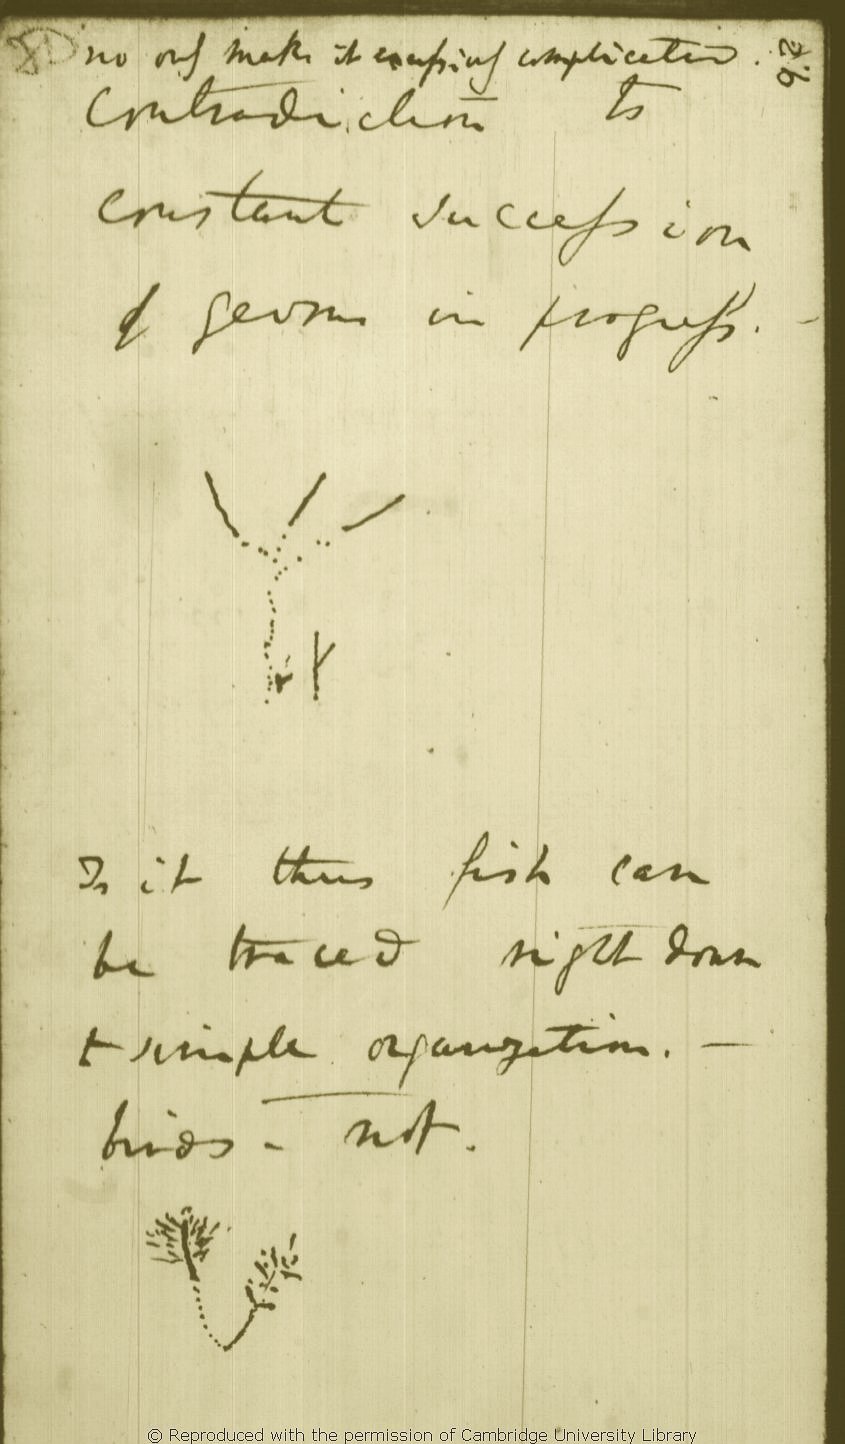 no only makes it excessively complicated.
Contradiction to
constant succession
of germs in progress. —
Is it thus fish can
be traced right down
to simple organization. —
birds — not.
© Reproduced with the permission of Cambridge University Library